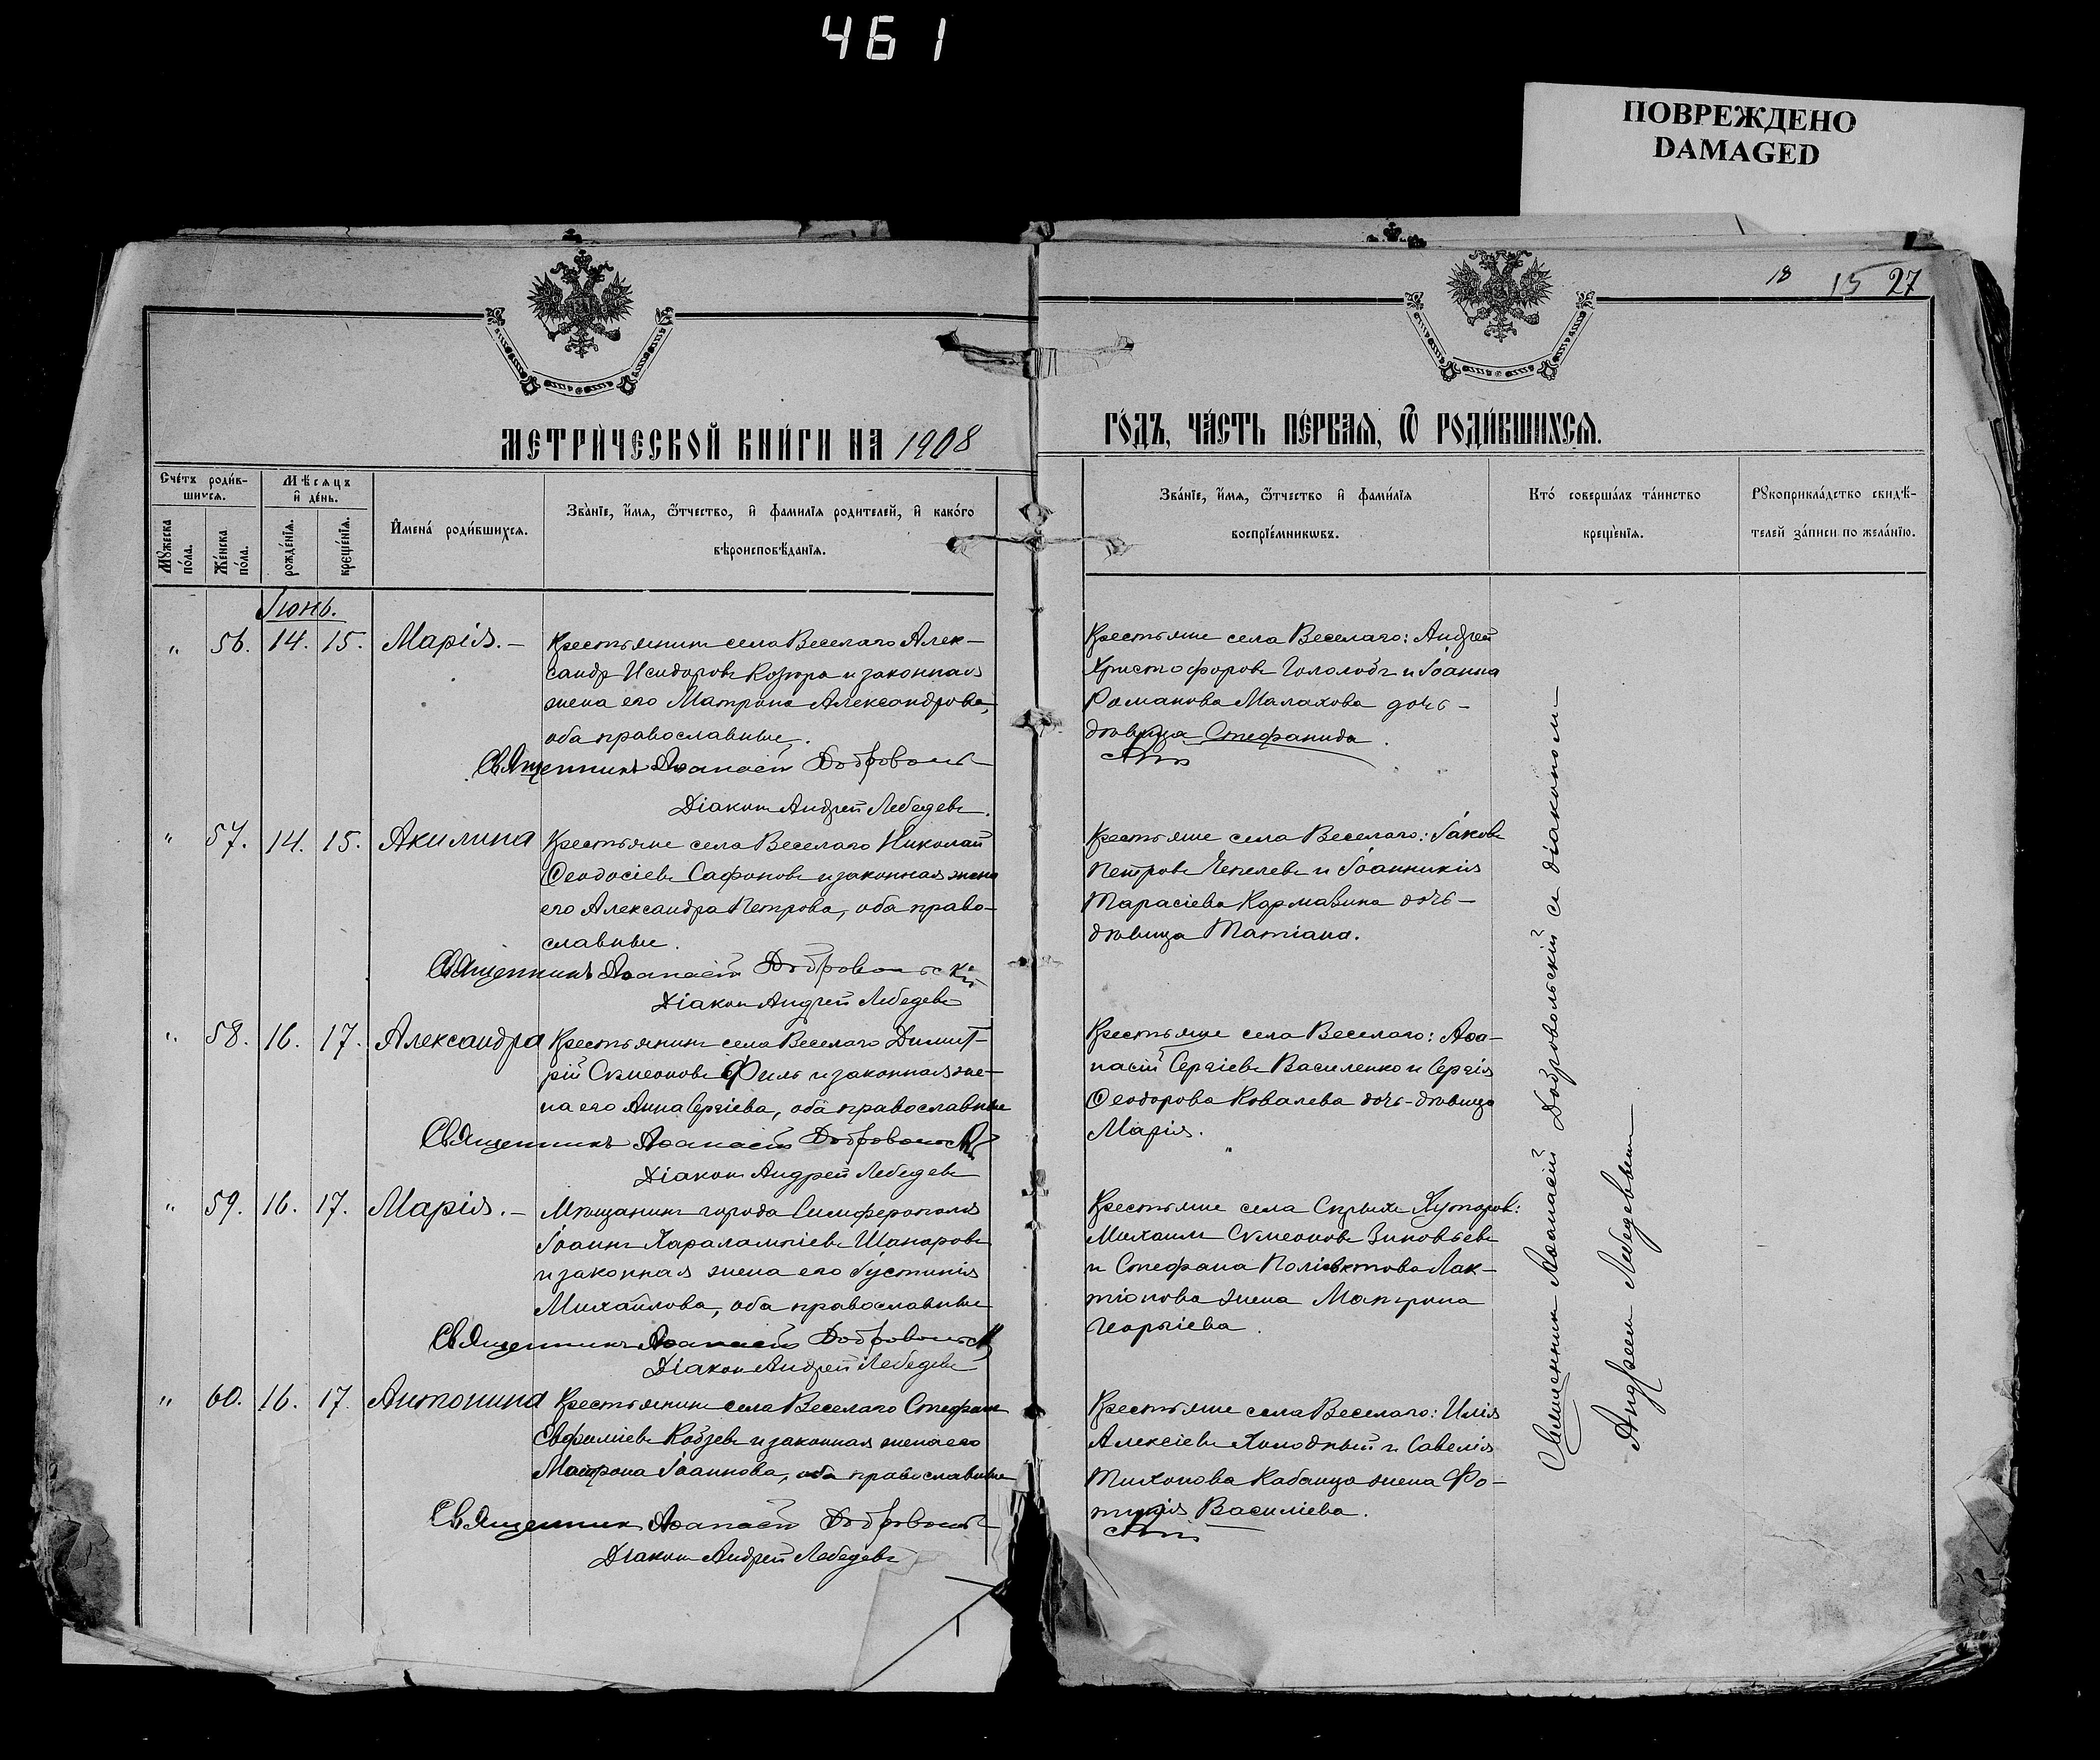 461
ПОВРЕЖДЕНО
DAMAGED
18 15 27
МЕТРИ́ЧЕСКОЙ КНИ́ГИ НА 1908
ГО́ДЪ, ЧА́СТЬ ПЕ́РВАѦ, Ѿ РОДИ́ВШИХСѦ.
Сче́тъ роди́в-
шихсѧ.
Мѣ́сѧцъ
и҆ де́нь.
Мꙋ́жеска
по́ла.
Же́нска
по́ла.
рожде́нїѧ.
креще́нїѧ.
И҆мена̀ роди́вшихсѧ.
Зва́нїе, и҆́мѧ, ѻ҆́тчество, и҆ фамилїѧ родителей, и҆ како́го
вѣроисповѣ́данїѧ.
Зва́нїе, и҆́мѧ, ѻ҆́тчество и҆ фами́лїѧ
воспрїе́мникѡвъ.
Кто̀ соверша́лъ та́инство
креще́нїѧ.
Рꙋкоприкла́дство свидѣ́-
телей за́писи по жела́нїю.
Іюнь.
" 56. 14. 15. Марія. –
Крестьянинъ села Веселаго Алек-
сандръ Исидоровъ Козюра и законная
жена его Матрона Александрова,
оба православные.
Священникъ Аѳанасій Добровольс
Діаконъ Андрей Лебедевъ.
Крестьяне села Веселаго: Андрей
Христофоровъ Гололобъ и Іоанна
Романова Малахова дочь –
дѣвица Стефанида.
" 57. 14. 15. Акилина
Крестьяне села Веселаго Николай
Ѳеодосіевъ Сафоновъ и законная жена
его Александра Петрова, оба право-
славные.
Священникъ Аѳанасій Добровольскій
Діаконъ Андрей Лебедевъ
Крестьяне села Веселаго: Іаковъ
Петровъ Чепелевъ и Іоанникія
Тарасіева Кармазина дочь –
дѣвица Татіана.
" 58. 16. 17. Александра
Крестьянинъ села Веселаго Димит-
рій Сѵмеоновъ Филь и законная же-
на его Анна Сергіева, оба православные
Священникъ Аѳанасій Добровольскій
Діаконъ Андрей Лебедевъ
Крестьяне села Веселаго: Аѳа-
насій Сергіевъ Василенко и Сергія
Ѳеодорова Ковалева дочь-дѣвица
Марія.
" 59. 16. 17. Марія. –
Мѣщанинъ города Симферополя
Іоаннъ Харалампіевъ Шапоровъ
и законная жена его Іустинія
Михайлова, оба православные
Священникъ Аѳанасій Добровольск
Діаконъ Андрей Лебедевъ
Крестьяне села Хуторовъ:
Михаилъ Сѵмеоновъ Зиновьевъ
и Стефана Поліевктова Лак-
тіонова жена Матрона
Георгіева.
" 60. 16. 17. Антонина
Крестьянинъ села Веселаго Стефанъ
Евфиміевъ Кобзевъ и законная жена его
Матрона Іоаннова, оба православные
Священникъ Аѳанасій Добровольс
Діаконъ Андрей Лебедевъ
Крестьяне села Веселаго: Илія
Алексіевъ Холодный и Савелія
Тихонова Кабанца жена Фо-
тинія Василіева.
Священникъ Аѳанасій Добровольскій съ діакономъ
Андреемъ Лебедевымъ